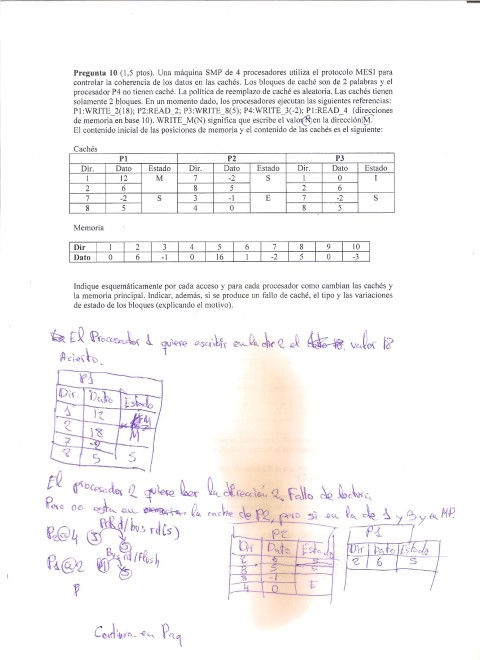 Pregunta 10 (1,5 ptos). Una máquina SMP de 4 procesadores utiliza el protocolo MESI para
controlar la coherencia de los datos en las cachés. Los bloques de caché son de 2 palabras y el
procesador P4 no tienen caché. La política de reemplazo de caché es aleatoria. Las cachés tienen
solamente 2 bloques. En un momento dado, los procesadores ejecutan las siguientes referencias:
P1:WRITE_2(18); P2:READ_2; P3:WRITE_8(5); P4:WRITE_3(-2); P1:READ_4 (direcciones
de memoria en base 10). WRITE_M(N) significa que escribe el valor N en la dirección M.
El contenido inicial de las posiciones de memoria y el contenido de las cachés es el siguiente:
Cachés
P1 P2 P3
Dir. Dato Estado Dir. Dato Estado Dir. Dato Estado
1 12 M 7 -2 S 1 0 I
2 6 8 5 2 6
7 -2 S 3 -1 E 7 -2 S
8 5 4 0 8 5
Memoria
Dir 1 2 3 4 5 6 7 8 9 10
Dato 0 6 -1 0 16 1 -2 5 0 -3
Indique esquemáticamente por cada acceso y para cada procesador como cambian las cachés y
la memoria principal. Indicar, además, si se produce un fallo de caché, el tipo y las variaciones
de estado de los bloques (explicando el motivo).
El Procesador 1 quiere escribir en la dir 2 el valor 18
Acierto.
P1
Dir. Dato Estado
1 12
2 18 M
7 -2
8 5 S
El procesador 2 quiere leer la dirección 2. Fallo de lectura
Pero no esta en la cache de P2, pero si en la de 1 y 3 y en MP.
P2 P1
Dir Dato Estado Dir Dato Estado
2 6 S
3 -1
4 0 E
P2@4 PrRd/busrd(s)
P1@2 Busrd/Flush
P
Continua en Pag